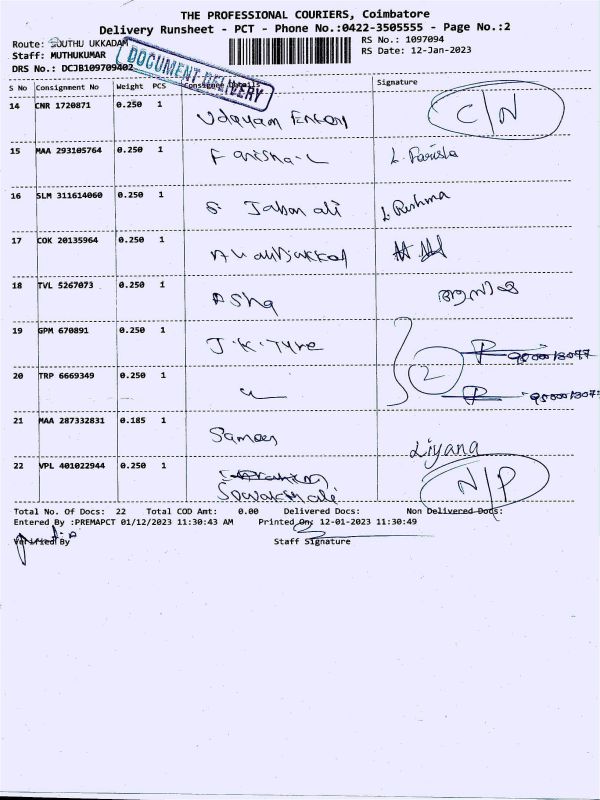 THE PROFESSIONAL COURIERS, Coimbatore
Delivery Runsheet - PCT - Phone No.:0422-3505555 - Page No.:2
Route: SOUTHU UKKADAM
RS No.: 1097094
Staff: MUTHUKUMAR
RS Date: 12-Jan-2023
DRS No.: DCJB109709402
DOCUMENT DELIVERY
S No Consignment No Weight PCS Consignee Details Signature
14 CNR 1720871 0.250 1 Udayam C/N
15 MAA 293105764 0.250 1 Farisha-L L. Farisha
16 SLM 311614060 0.250 1 S. Jaban ali L. Reshma
17 COK 20135964 0.250 1
18 TVL 5267073 0.250 1 Asha
19 GPM 670891 0.250 1 J.K. Tyre 2
20 TRP 6669349 0.250 1
21 MAA 287332831 0.185 1 Liyana
22 VPL 401022944 0.250 1 N/P
Total No. Of Docs: 22 Total COD Amt: 0.00 Delivered Docs: Non Delivered Docs:
Entered By :PREMAPCT 01/12/2023 11:30:43 AM Printed On: 12-01-2023 11:30:49
Verified By Staff Signature